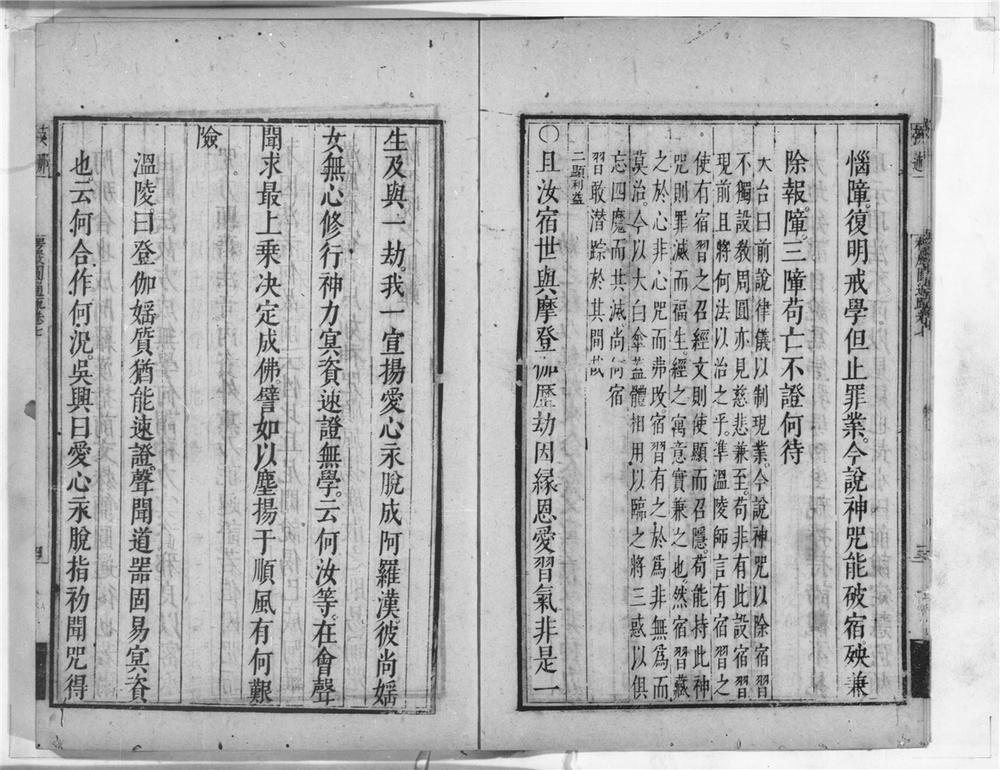 惱障。復明戒學但止罪業。今說神咒能破宿殃兼
除報障。三障苟亡不證何待
大台曰前說律儀以制現業。今說神咒以除宿習
不獨設教周圓亦見慈悲兼至。苟非有此設宿習
現前且將何法以治之乎。準溫陵師言有宿習之
使有宿習之召經文則使顯而召隱。苟能持此神
咒則罪滅而福生。經之寓意實兼之也。然宿習藏
之於心非心咒而弗攻宿習有之於爲非無爲而
莫治。今以大白傘蓋體相用以臨之將三惑以俱
忘四魔而共滅。尚何宿
習敢潛踪於其間哉
二顯利益
○且汝宿世與摩登伽歷劫因緣恩愛習氣非是一
生及與一劫。我一宣揚愛心永脫成阿羅漢。彼尚婬
女無心修行神力冥資速證無學。云何汝等。在會聲
聞求最上乘決定成佛。譬如以塵揚于順風有何艱
險
溫陵曰登伽婬質猶能速證。聲聞道器固易冥資
也。云何合作何況。吳興曰愛心永脫指初聞咒得
楞嚴圓通疏卷七